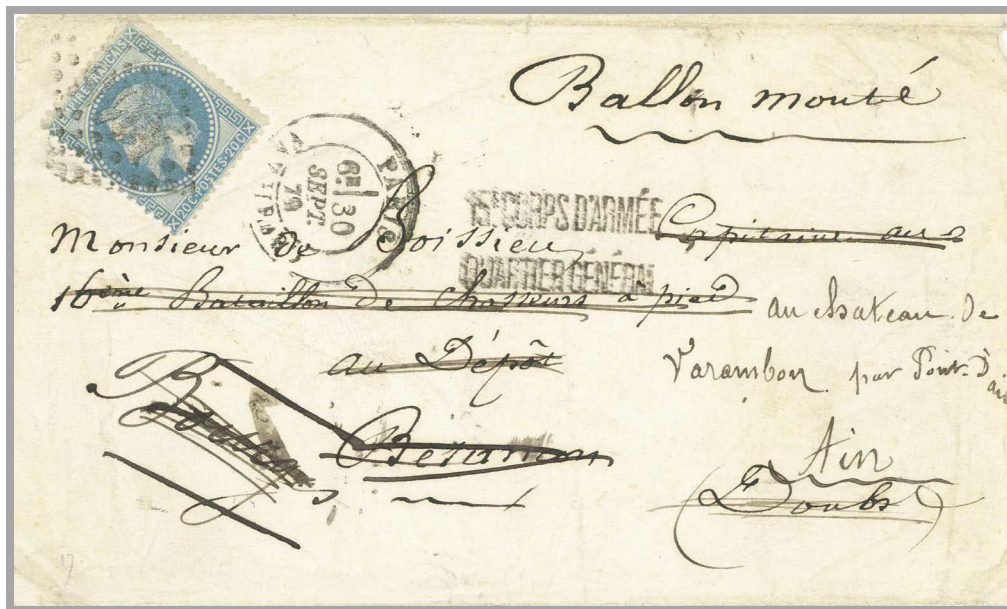 EMPIRE FRANÇAIS
20C·POSTES·20C
Ballon monté
PARIS
6E 30
SEPT.
70
15E CORPS D'ARMÉE
QUARTIER GÉNÉRAL
Monsieur de Boissieu, Capitaine au
16ème Bataillon de Chasseurs à pied
au chateau de
au Dépôt
Varambon par Pont-d'ain
Besançon
Ain
(Doubs)